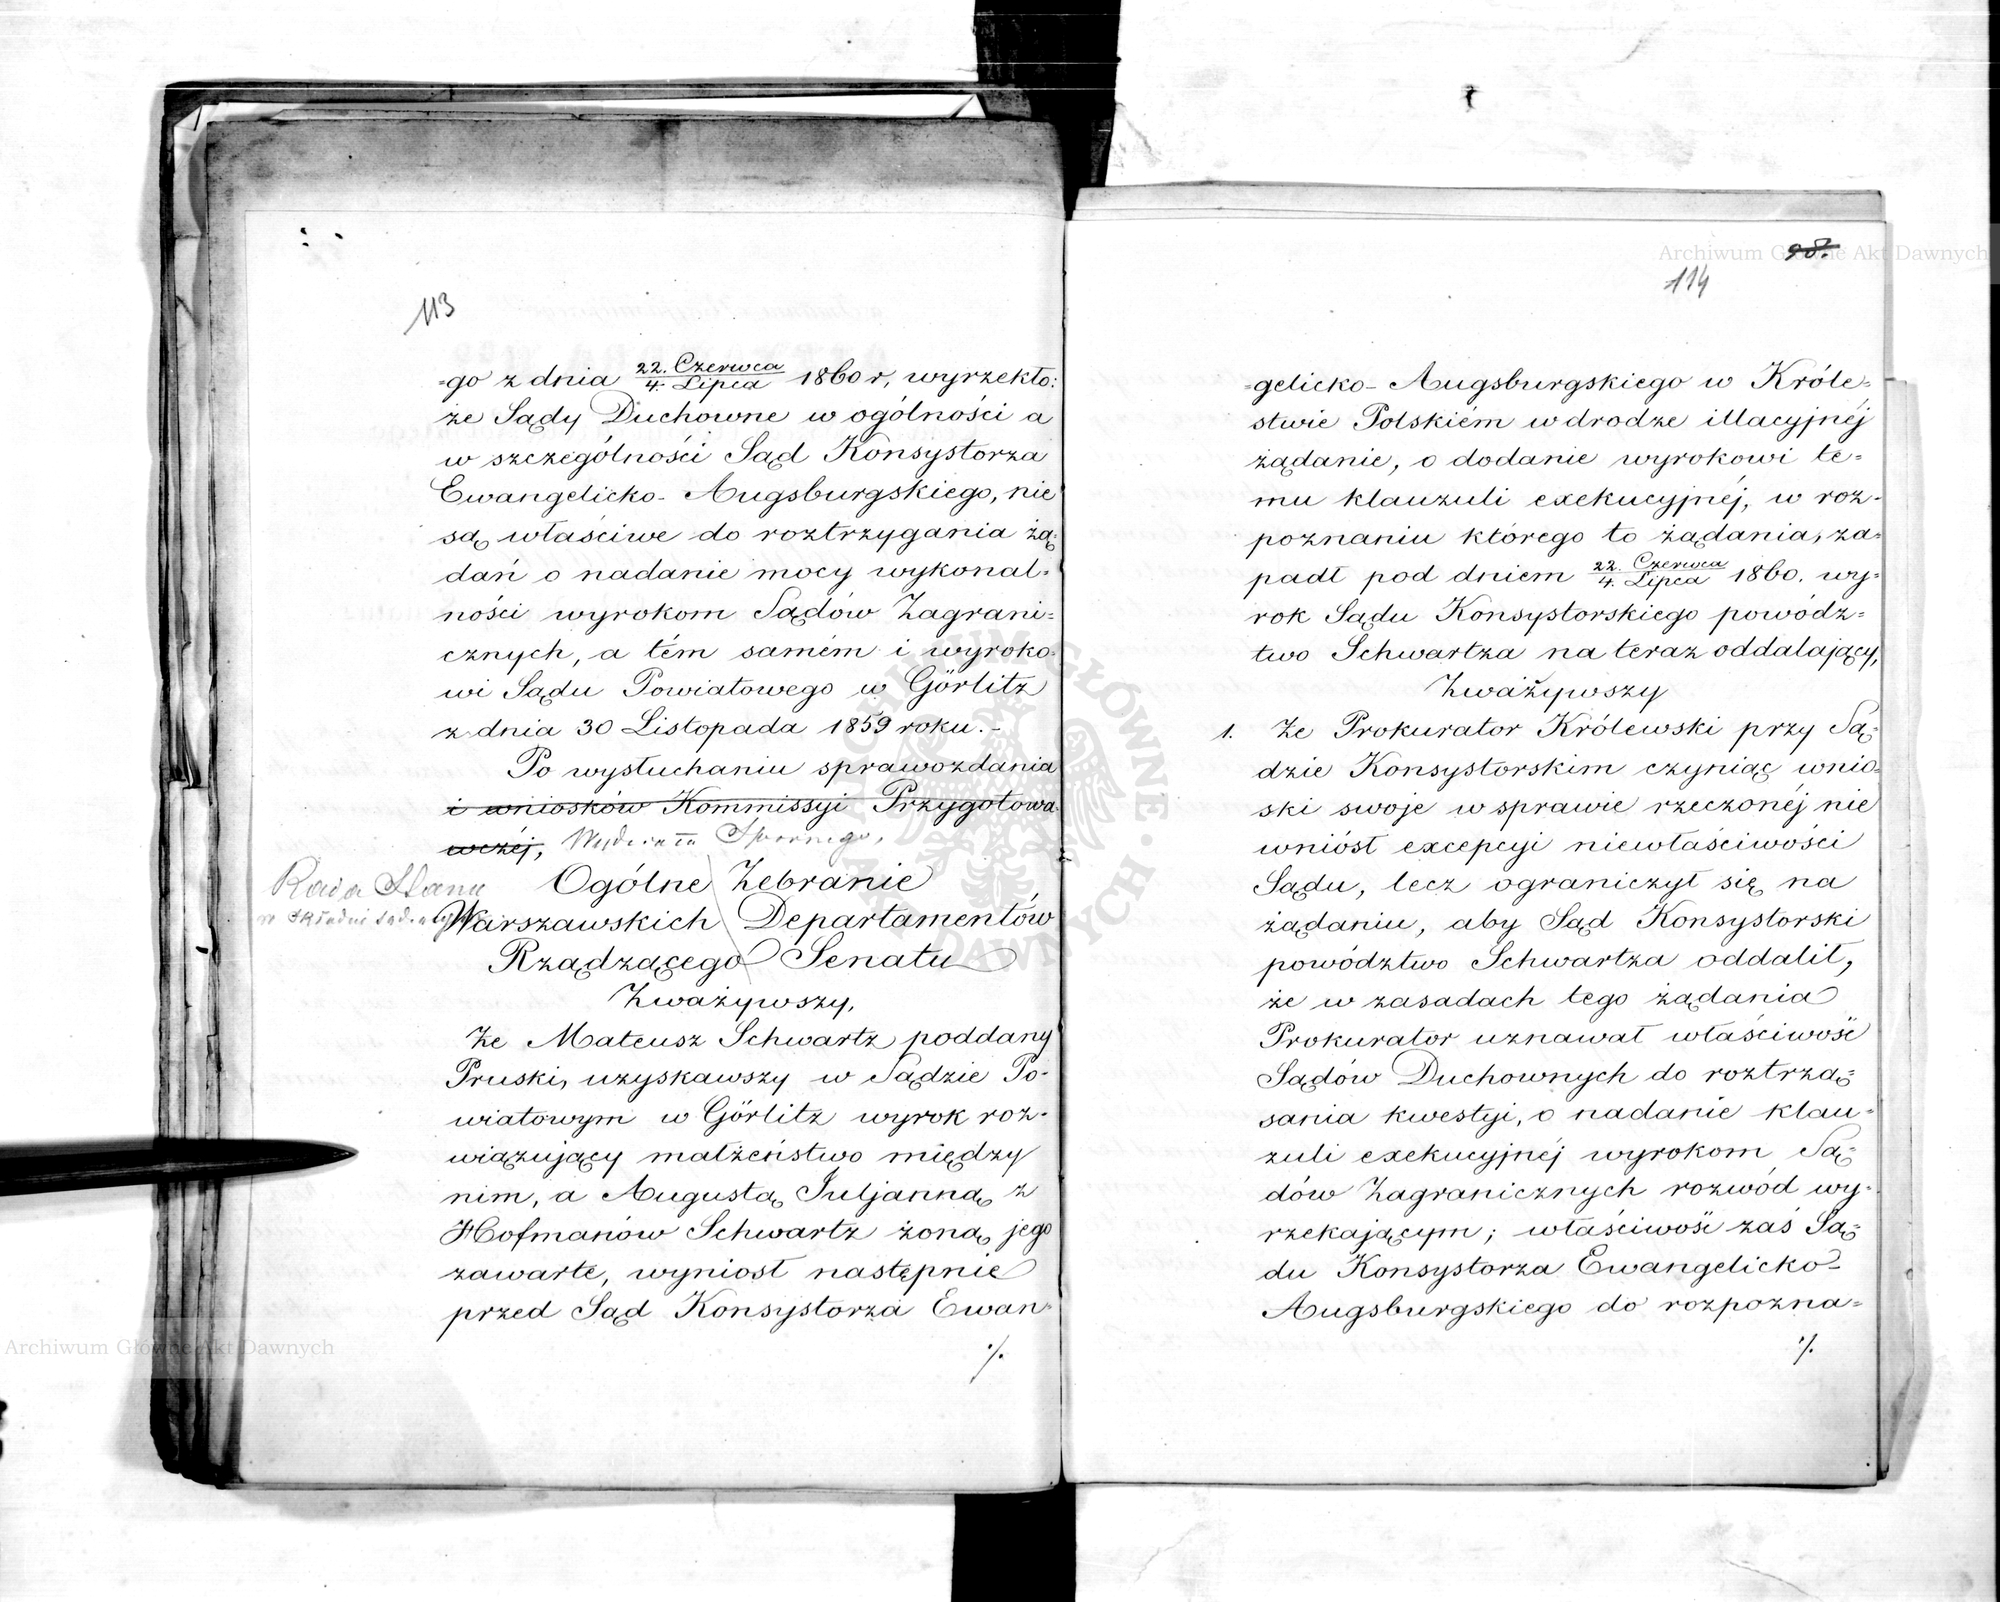 113
-go z dnia 22. Czerwca / 4. Lipca 1860 r, wyrzekło:
że Sądy Duchowne w ogólności a
w szczególności Sąd Konsystorza
Ewangelicko-Augsburgskiego, nie
są właściwe do roztrzygania żą-
dań o nadanie mocy wykonal-
ności wyrokom Sądów Zagrani-
cznych, a tém samém i wyroko-
wi Sądu Powiatowego w Görlitz
z dnia 30 Listopada 1859 roku.-
Po wysłuchaniu sprawozdania
i wniosków Kommissyi Przygotowa-
wczéj, Wydziału Spornego,
Rada Stanu
w Składzie Sądzącym
Ogólne Zebranie
Warszawskich Departamentów
Rządzącego Senatu
Zważywszy,
Że Mateusz Schwartz poddany
Pruski, uzyskawszy w Sądzie Po-
wiatowym w Görlitz wyrok roz-
wiązujący małżeństwo między
nim, a Augustą Juljanną z
Hofmanów Schwartz żoną jego
zawarte, wyniosł następnie
przed Sąd Konsystorza Ewan-
./.
98.
114
-gelicko-Augsburgskiego w Króle-
stwie Polskiém w drodze illacyjnéj
żądanie, o dodanie wyrokowi te-
mu klauzuli exekucyjnéj, w roz-
poznaniu którego to żądania, za-
padł pod dniem 22. Czerwca / 4. Lipca 1860. wy-
rok Sądu Konsystorskiego powódz-
two Schwartza na teraz oddalający,
Zważywszy
1. Że Prokurator Królewski przy Są-
dzie Konsystorskim czyniąc wnio-
ski swoje w sprawie rzeczonéj nie
wniósł excepcyi niewłaściwości
Sądu, lecz ograniczył się na
żądaniu, aby Sąd Konsystorski
powództwo Schwartza oddalił,
że w zasadach tego żądania
Prokurator uznawał właściwość
Sądów Duchownych do roztrzą-
sania kwestyi, o nadanie klau-
zuli exekucyjnéj wyrokom Są-
dów Zagranicznych rozwód wy-
rzekającym; właściwość zaś Są-
du Konsystorza Ewangelicko-
Augsburgskiego do rozpozna-
./.
Archiwum Główne Akt Dawnych
Archiwum Główne Akt Dawnych
ARCHIWUM GŁÓWNE AKT DAWNYCH